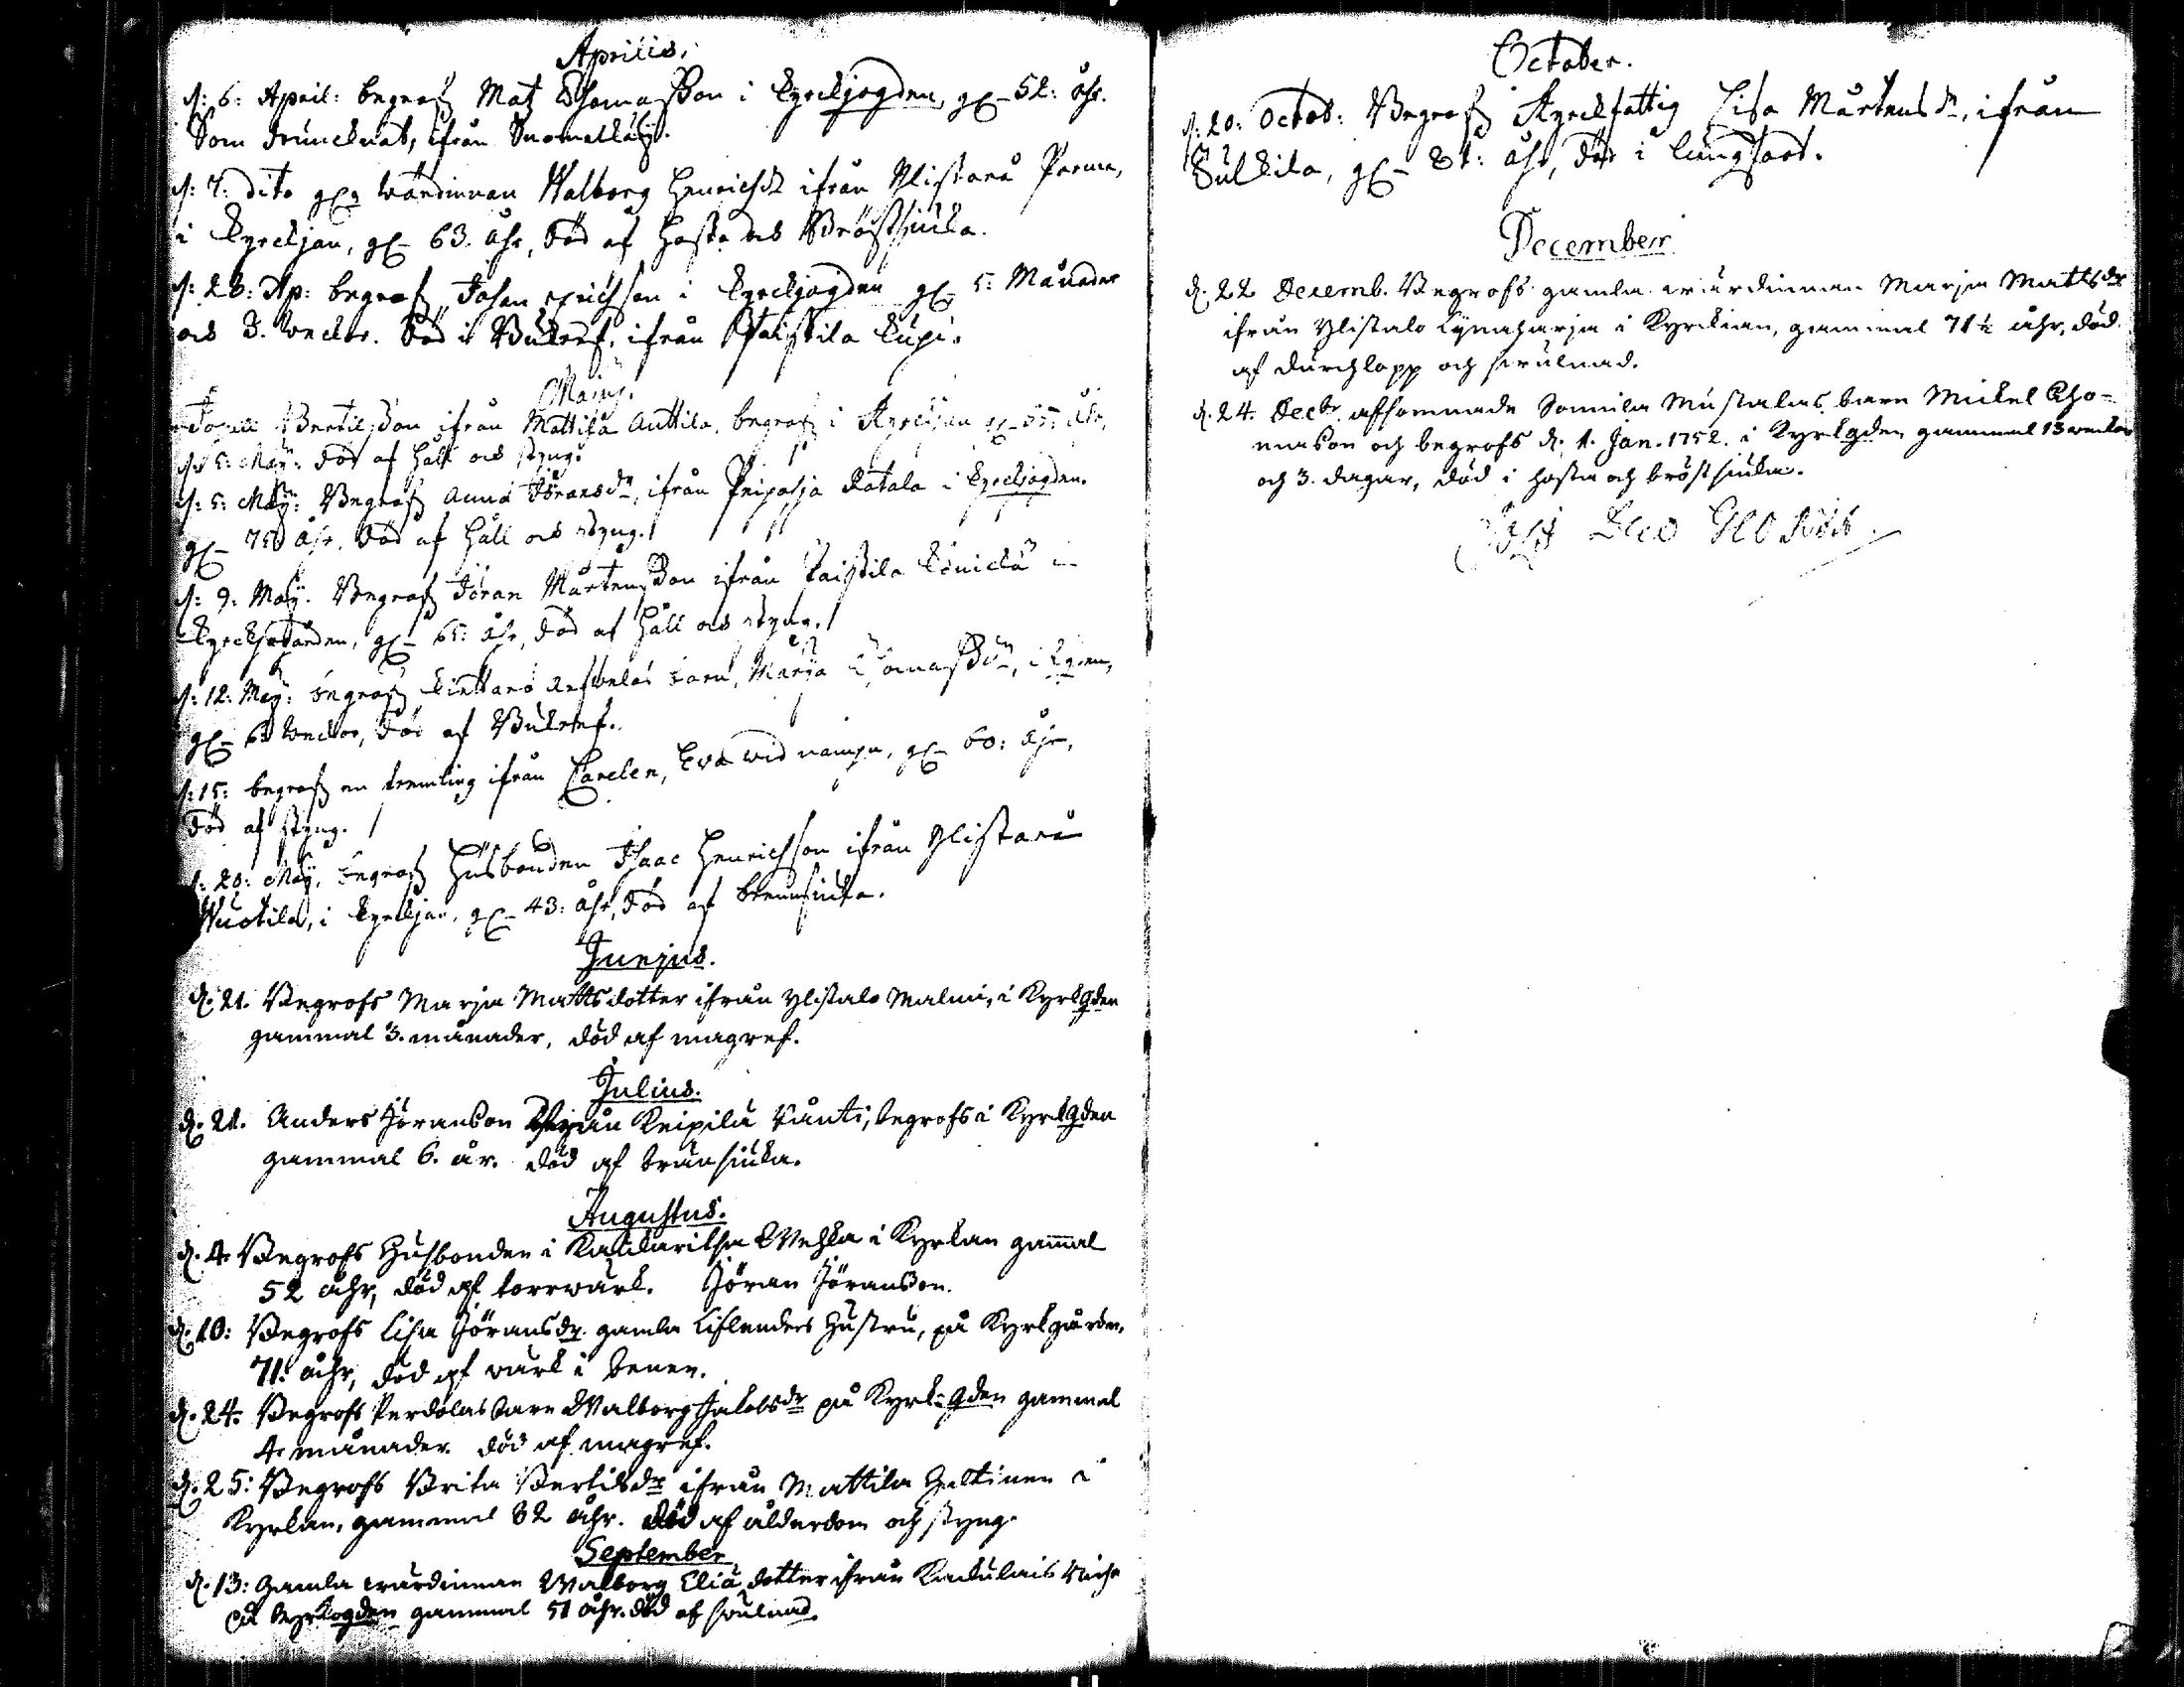 Aprilis.
d: 6: April: begrofs Matz Thomasson i kyrckjogden, gl- 52: åhr.
Som druncknat, ifrån
d: 7: dito wärdinnan Walborg Henrichsdr ifrån Ylistaro Perma,
i kyrckjan, gl- 63. åhr, död af hosta och Bröstsiuka.
d: 28: Ap: begrofs Johan Erichsson i kyrckjogden gl- 5: Månader
och 3. weckor. död i Bukref, ifrån
Majus.
Bertilsson ifrån Mattila Anttila, begrofs i Kyrckjan
d: 5: May: död af håll och styng.
d: 5: May: Begrofs Anna Jöransdr, ifrån i kyrckjogden.
gl- 75 åhr. död af håll och styng.
d: 9: May. Begrofs Jöran Mårtensson ifrån
kyrckjogården, gl- 65: åhr, död af håll och styng.
d: 12: May: begrofs barn, Marja Tomasdr, i
gl- 6 weckor, död af Bukref.
d: 15: begrofs en fremling ifrån Carelen, Eva wid nampn, gl- 60: åhr,
död af styng.
d: 20: May, begrofs Husbonden Isaac Henrichsson ifrån Ylistaro
Wuotila, i kyrckjan, gl- 43: åhr, död af brennsiuka.
Junjus.
d. 21. Begrofs Marja Mattsdotter ifrån Ylistalo Malmi, i Kyrkgden
gammal 3. månader, död af magref.
Julius.
d. 21. Anders Jöranson ifrån Keipilä Vänti, begrofs i Kyrkgden
gammal 6. år. död af bränsiuka.
Augustus.
d. 4. Begrofs Husbonden i Kaukaritsa Wehka i Kyrkan gammal
52 åhr, död af torrwärk. Jöran Jöranson.
d. 10: Begrofs Lisa Jöransdr. gamla Liflenders Hustru, på Kyrkgården,
71. åhr, död af wärk i benen.
d. 24. Begrofs Perdolas barn Walborg Jakobsdr på Kyrk-gden gammal
4. månader död af magref.
d. 25: Begrofs Brita Bertilsdr ifrån Mattila Heltinen i
Kyrkan, gammal 82 åhr. död af ålderdom och styng.
September
d. 13: Gamla wärdinnan Walborg Eliædotter ifrån
på kyrkogden gammal 51 åhr. död af swulnad.
October.
d: 20: Octob: Begrofs Kyrckfattig Lisa Mårtensdr, ifrån
Sulkila, gl- 81: åhr, död i lungsoot.
December
d. 22 Decemb. Begrofs gamla wärdinnan Marja Mattsdr
ifrån Ylistalo Kynnäharja i Kyrckian, gammal 71½ åhr, död
af durchlopp och swulnad.
d. 24. Decbr. afsomnade Sonnila Mustalas barn Mickel Tho-
mason och begrofs d. 1. Jan. 1752. i Kyrkgden gammal 13 weckor
och 3. dagar, död i hosta och bröstsiuka.